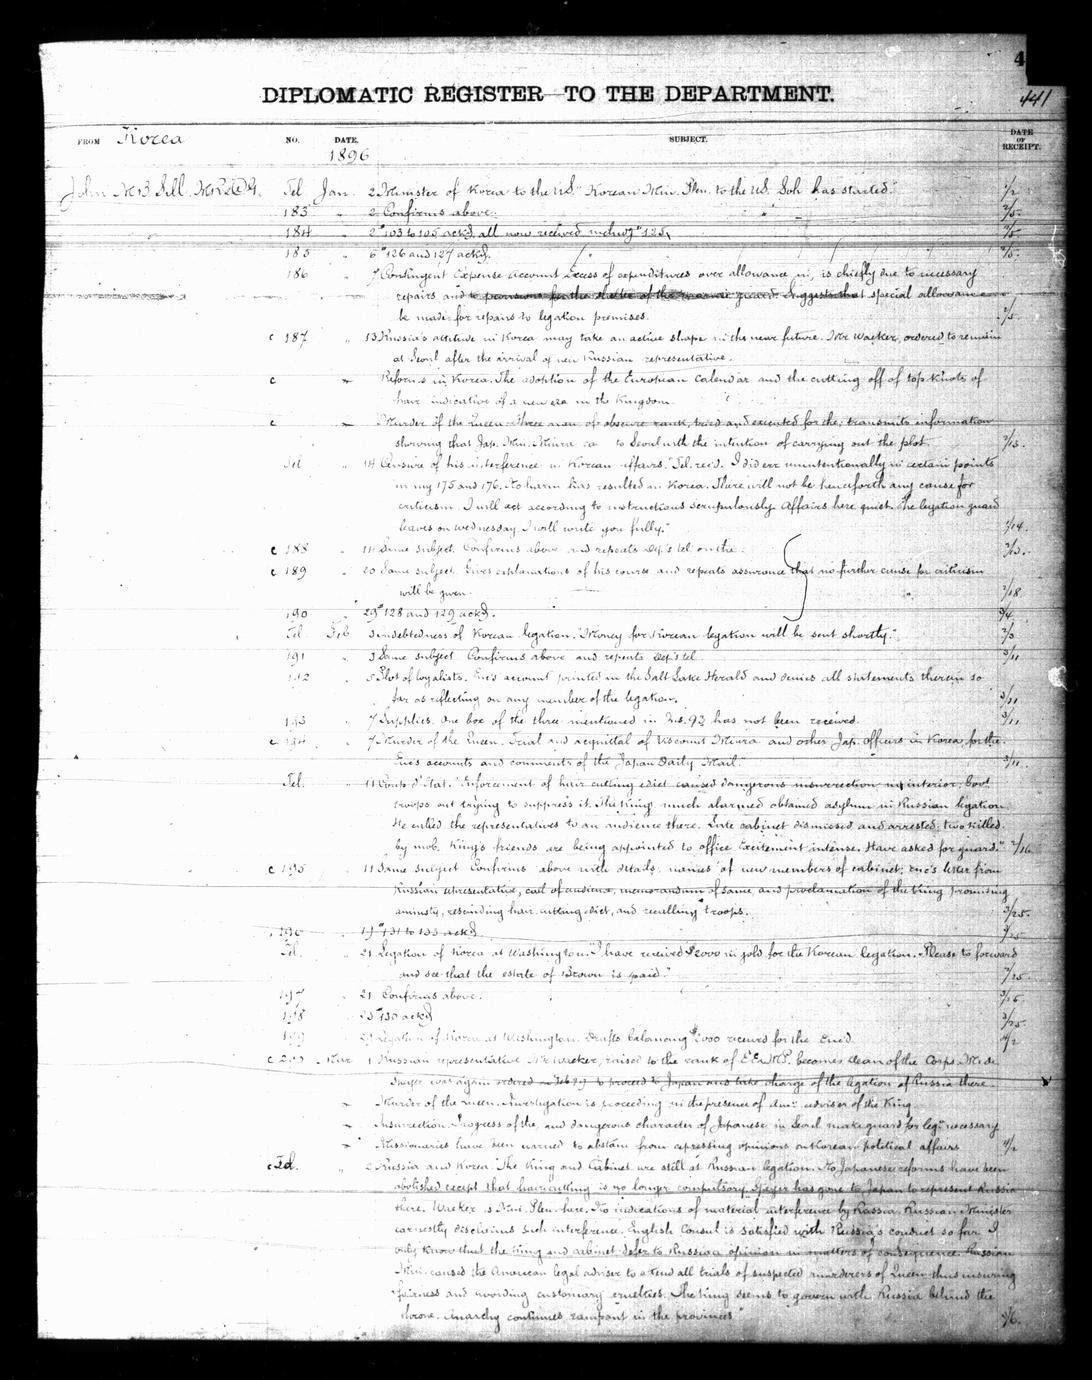 4
441
DIPLOMATIC REGISTER TO THE DEPARTMENT.
FROM Korea NO. DATE. 1896 SUBJECT. DATE OF RECEIPT.
John M B Sill. Tel Jan. 2 Minister of Korea to the U.S. "Korean Min. Plen. to the U.S. Soh has started."
183 " 2 Confirms above. 2/5
184 " 2 #103 to 105 ackd, all now received includg #125 2/5
185 " 6 #126 and 127 ackd. 2/5
186 " 7 Contingent Expense Account. Excess of expenditures over allowance in, is chiefly due to necessary
repairs and to provisions for the shelter of the guard. Suggests that special allowance
be made for repairs to legation premises. 2/5
c 187 " 13 Russia's attitude in Korea may take an active shape in the near future. Mr Waeker, ordered to remain
at Seoul after the arrival of new Russian representative.
c " Reforms in Korea. The adoption of the European Calendar and the cutting off of top knots of
hair indicative of a new era in the Kingdom.
c " Murder of the Queen. Three men of obscure rank tried and executed for the; transmits information
showing that Jap. Min. Miura ca to Seoul with the intention of carrying out the plot. 2/13
Tel " 14 Censure of his interference in Korean affairs. "Tel. rec'd. I did err unintentionally in certain points
in my 175 and 176. No harm has resulted in Korea. There will not be henceforth any cause for
criticism. I will act according to instructions scrupulously. Affairs here quiet. The legation guard
leaves on wednesday. I will write you fully." 1/14.
c 188 " Same subject. Confirms above and repeats Dep's tel. on the
c 189 " 20 Same subject. Gives explanations of his course and repeats assurance that no further cause for criticism
will be given. 2/18
190 " 29 #128 and 129 ackd. 3/4
Tel Feb. 3 Indebtedness of Korean legation. "Money for Korean legation will be sent shortly." 2/3
191 " 3 Same subject. Confirms above and repeats Dep's tel. 3/11
192 " 5 Plot of loyalists. Enc's account printed in the Salt Lake Herald and denies all statements therein so
far as reflecting on any member of the legation. 3/11
193 " 7 Supplies. One box of the three mentioned in No. 93 has not been received. 3/11
c 194 " 7 Murder of the Queen. Trial and acquittal of Viscount Miura and other Jap. officers in Korea, for the.
Enc's accounts and comments of the "Japan Daily Mail." 3/11
Tel. " 11 Coup d'Etat. "Enforcement of hair cutting edict caused dangerous insurrection in interior. Gov't
troops out trying to suppress it. The King, much alarmed obtained asylum in Russian legation.
He called the representatives to an audience there. Late cabinet dismissed and arrested; two killed
by mob. King's friends are being appointed to office. Excitement intense. Have asked for guard." 2/16
c 195 " 11 Same subject. Confirms above with details; names of new members of cabinet; enc's letter from
Russian representative, call of audience, memorandum of same, and proclamation of the King promising
amnesty, rescinding hair cutting edict, and recalling troops. 3/25.
196 " 19 #131 to 133 ackd. 3/25
Tel. " 21 Legation of Korea at Washington. "I have received $2000 in gold for the Korean legation. Please to forward
and see that the estate of Brown is paid." 2/25
197 " 21 Confirms above.
198 " 25 #130 ackd 3/25
199 " 29 Legation of Korea at Washington. Drafts balancing $2000 received for the Enc'd. 4/2
c 200 Mar. 1 Russian representative Mr Waeker, raised to the rank of E.E. & M.P. becomes dean of the Corps. M. de
Speyer was again ordered on Feb 29 to proceed to Japan and take charge of the legation of Russia there.
" Murder of the Queen. Investigation is proceeding in the presence of Am: adviser of the King.
" Insurrection. Progress of the, and dangerous character of Japanese in Seoul make guard for leg: necessary.
" Missionaries have been warned to abstain from expressing opinions on Korean political affairs. 4/2
c Tel. " 2 Russia and Korea. "The King and Cabinet are still at Russian legation. No Japanese reforms have been
abolished except that haircutting is no longer compulsory. Speyer has gone to Japan to represent Russia
there. Waeker is Min. Plen. here. No indications of material interference by Russia. Russian Minister
earnestly disclaims such interference. English Consul is satisfied with Russia's conduct so far. I
only know that the King and cabinet defer to Russian opinion in matters of consequence. Russian
Min. caused the American legal adviser to attend all trials of suspected murderers of Queen thus insuring
fairness and avoiding customary cruelties. The King seems to govern with Russia behind the
throne. Anarchy continues rampant in the provinces"